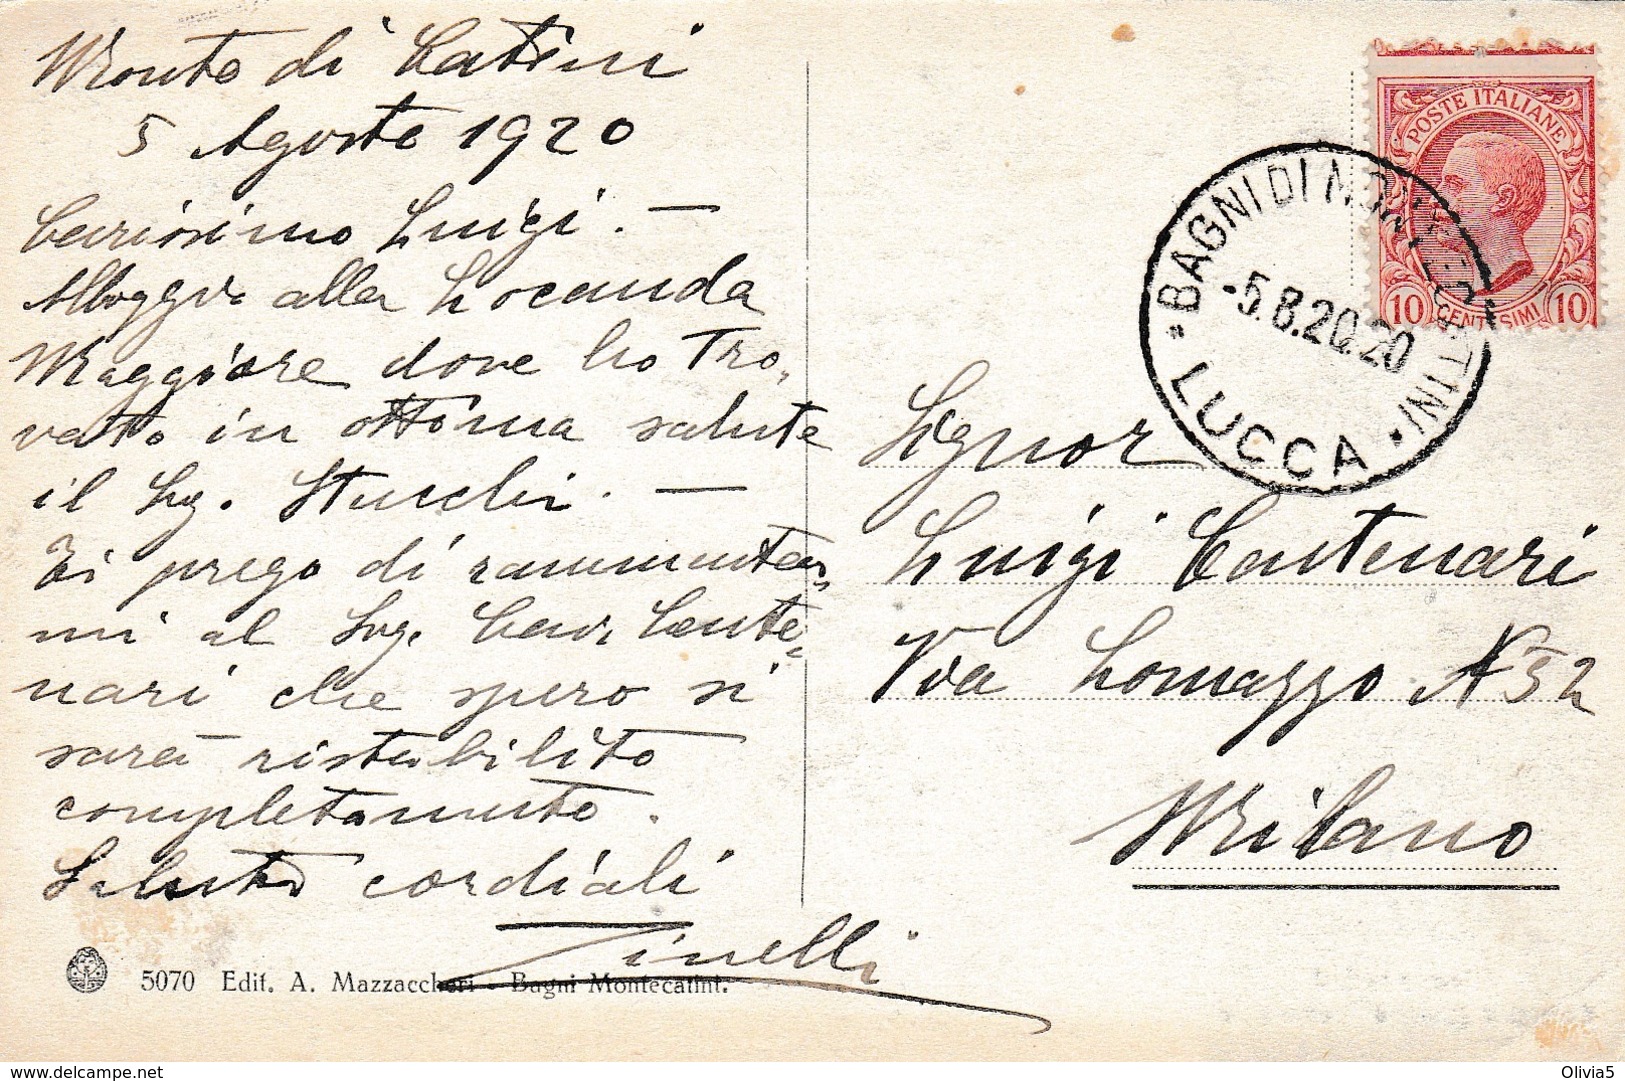 Monte di Catini
5 Agosto 1920
Carissimo Luigi. —
Alloggio alla Locanda
Maggiore dove ho tro,
vato in ottima salute
il Sig. Stucchi. —
Ti prego di rammentar,
mi al Sig. Cav. Cante=
nari che spero si
sarà ristabilito
completamente.
Saluti cordiali
Zinelli
5070 Edit. A. Mazzaccheri - Bagni Montecatini.
POSTE ITALIANE
10 CENTESIMI 10
* BAGNI DI MONTECATINI *
-5.8.20.20
LUCCA
Signor
Luigi Cantenari
Via Lomazzo N 52
Milano
delcampe.net
Olivia5